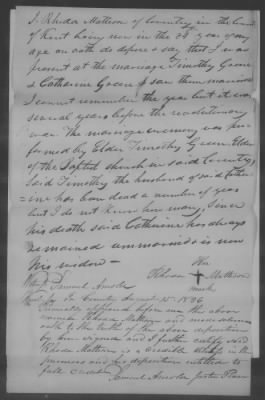 I Rhoda Matteson of Coventry in the County
of Kent being now in the year of my
age on oath do depose & say that I was
present at the marriage Timothy Greene
& Catharine Greene & saw them married
I cannot remember the year but it was
several years before the revolutionary
war. The marriage ceremony was per
formed by Elder Timothy Greene Elder
of the Baptist church in said Coventry
Said Timothy the husband of said Cathar
=ine has been dead a number of years
but I do not know how many, Since
his death said Catharine has always
remained unmarried is now
his widow—
Her
Rhoda + Matteson
mark
Samuel Arnold
Coventry August 15 1836
Personally appeared before me the above
named Rhoda Matteson and made solemn
oath to the truth of the above deposition
by her signed and I further certify said
Rhoda Matteson is a credible in the
premises and his deposition entitled to
full credit
Samuel Arnold Justice Peace